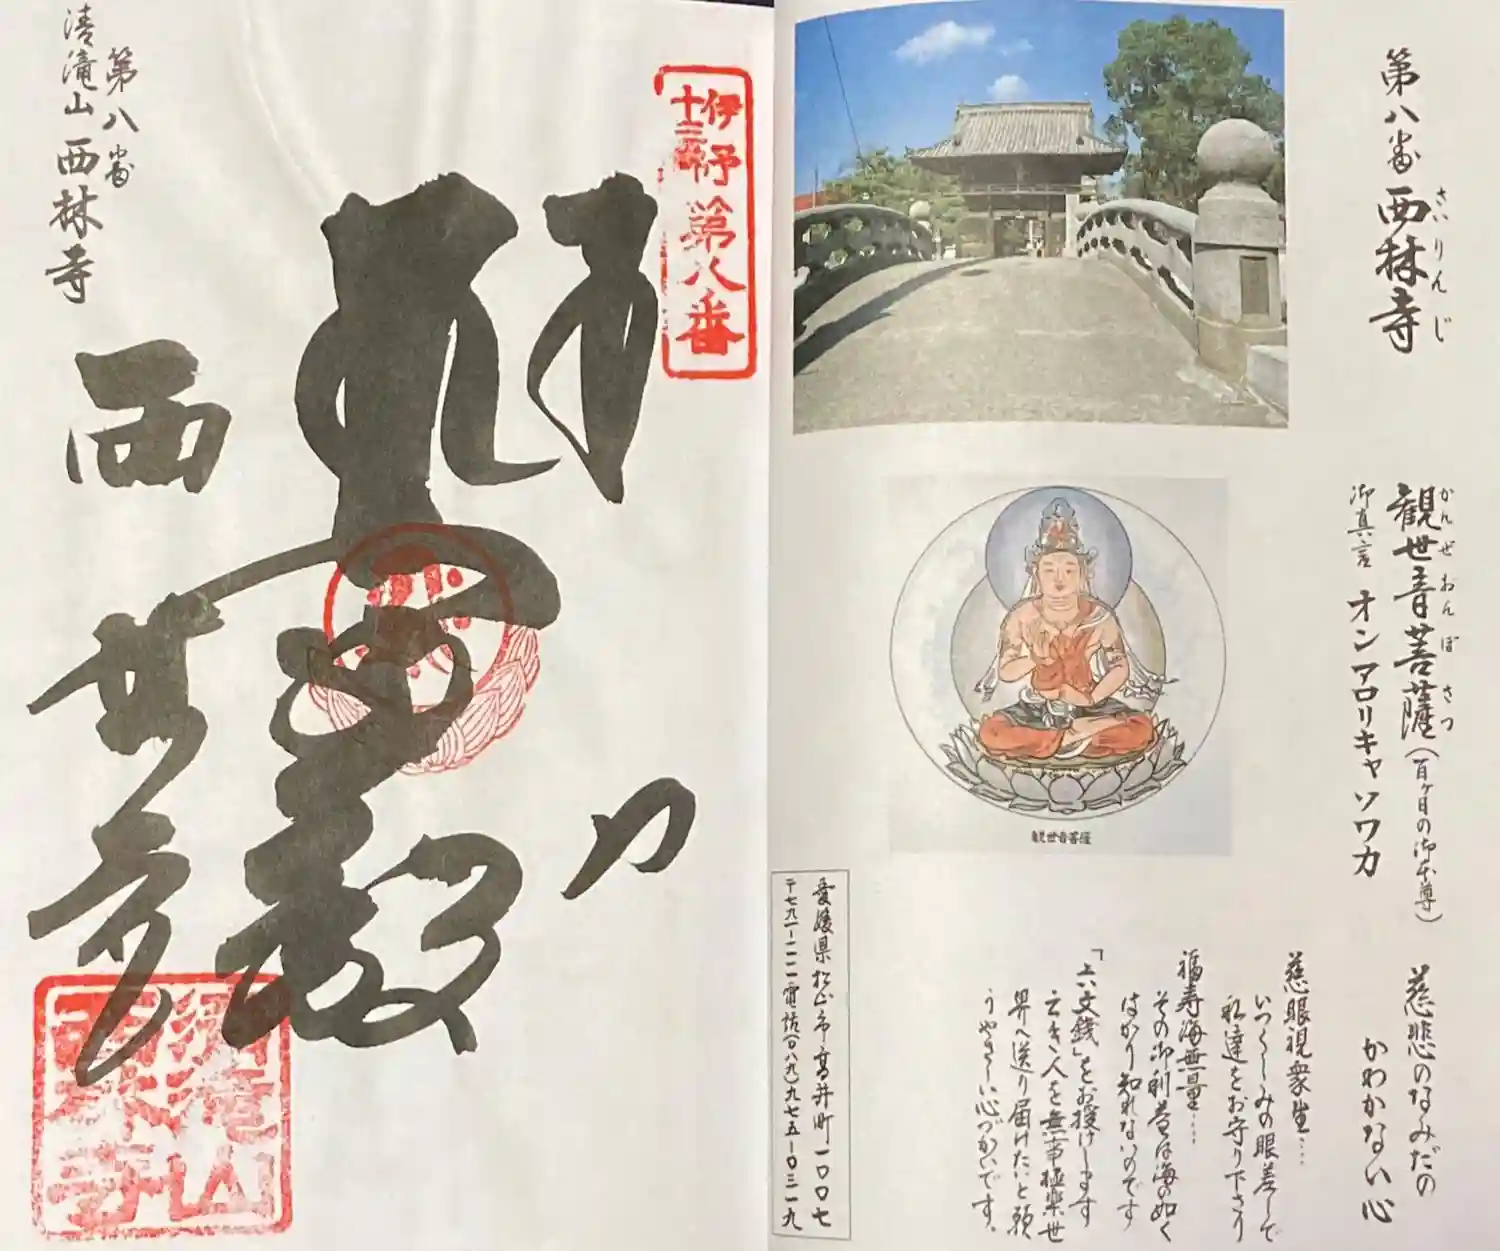 第八番
西林寺
さいりんじ
観世音菩薩(百ヶ日の御本尊)
かんぜおんぼさつ
御真言 オン アロリキャ ソワカ
慈悲のなみだの
かわかない心
慈眼視衆生…
いつくしみの眼差しで
私達をお守り下さり
福寿海無量…
その御利益は海の如く
はかり知れないのです
「六文銭」をお授けします
亡き人を無事極楽世
界へ送り届けたいと願
うやさしい心づかいです。
観世音菩薩
愛媛県松山市高井町一〇〇七
〒七九一-一一一一電話(〇八九)九七五-〇三一九
伊予
十三佛
第八番
第八番
清滝山西林寺
西
清滝山
西林寺